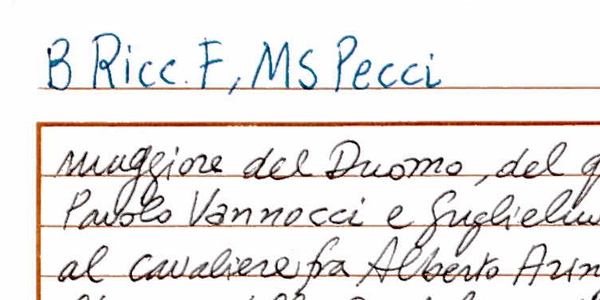 B Ricc. F, MS Pecci
maggiore del Duomo, del
Paolo Vannocci e
al cavaliere fra Alberto